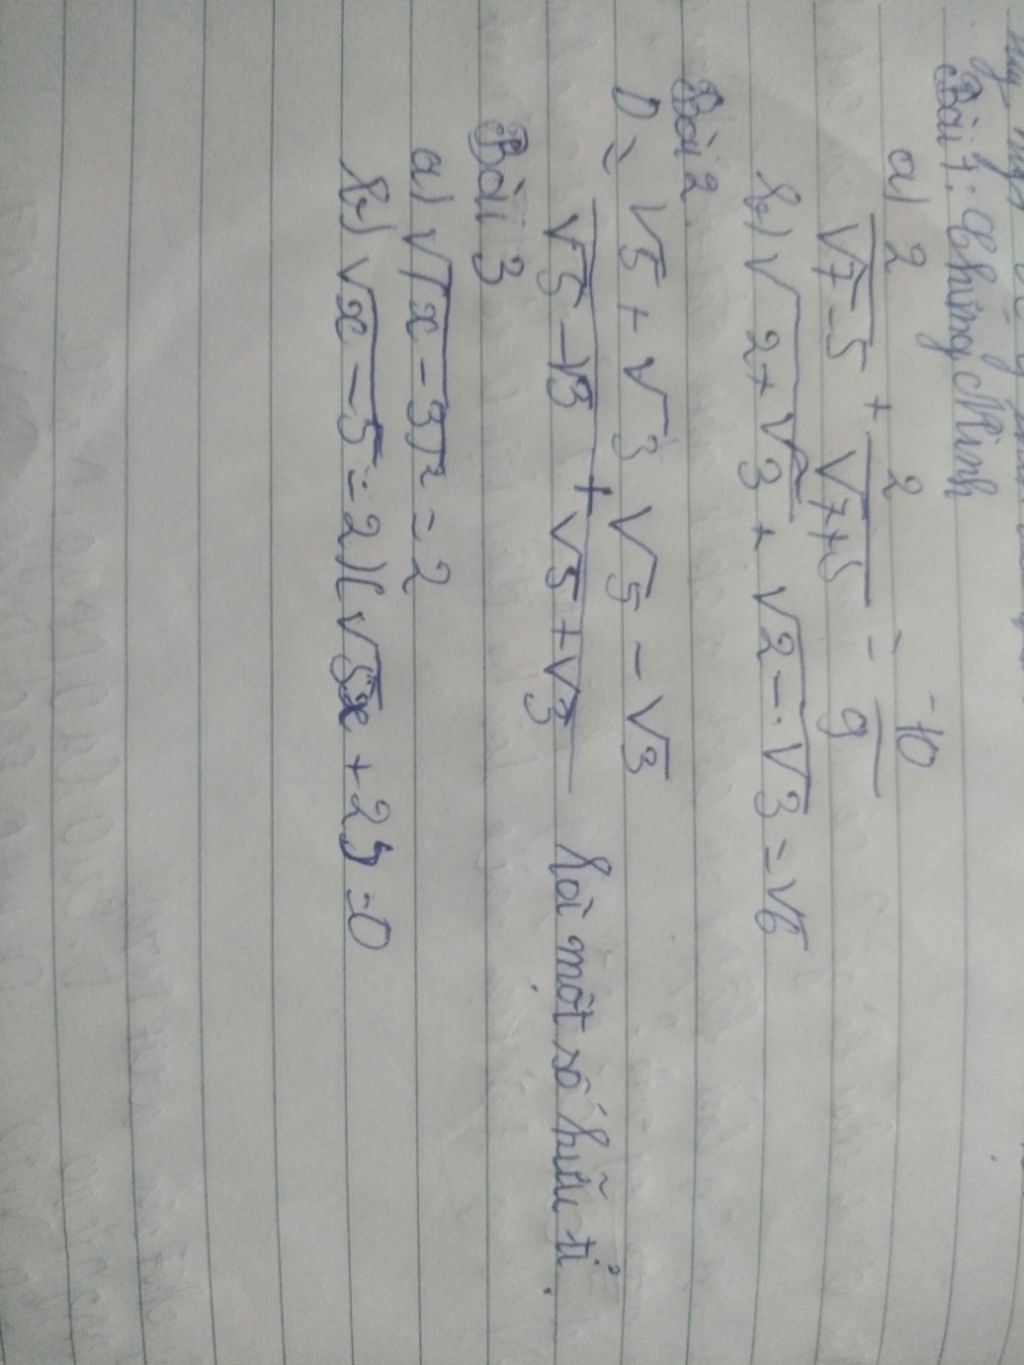 Bài 1: Chứng Minh
a) 2/(√7-5) + 2/(√7+5) = -10/9
b) √(2+√3) + √(2-√3) = √6
Bài 2.
D = (√5+√3)/(√5-√3) + (√5-√3)/(√5+√3) là một số hữu tỉ.
Bài 3
a) √(x-3)² = 2
b) √x-5=2)(√5x+25=0